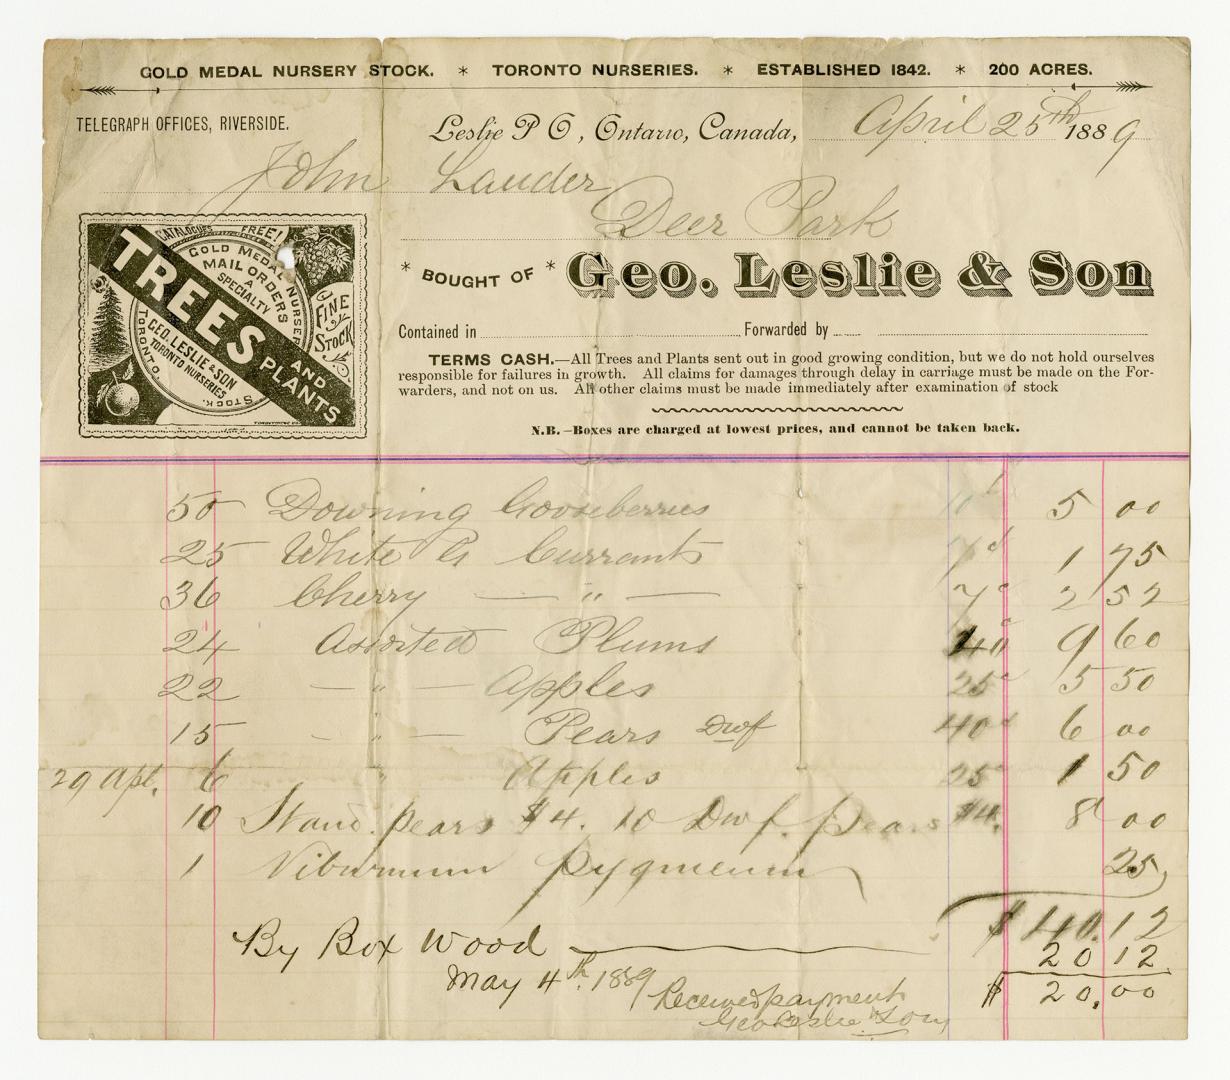 GOLD MEDAL NURSERY STOCK. * TORONTO NURSERIES. * ESTABLISHED 1842. * 200 ACRES.
TELEGRAPH OFFICES, RIVERSIDE.
Leslie P O, Ontario, Canada, April 25th 1889
John Lauder
Deer Park
CATALOGUES FREE!
GOLD MEDAL NURSERY STOCK.
MAIL ORDERS
A
SPECIALTY
TREES AND PLANTS
FINE STOCK
GEO. LESLIE & SON
TORONTO NURSERIES
TORONTO.
* BOUGHT OF * Geo. Leslie & Son
Contained in Forwarded by
TERMS CASH.—All Trees and Plants sent out in good growing condition, but we do not hold ourselves
responsible for failures in growth. All claims for damages through delay in carriage must be made on the For-
warders, and not on us. All other claims must be made immediately after examination of stock
N.B.—Boxes are charged at lowest prices, and cannot be taken back.
50 Downing Gooseberries 10 5 00
25 White G Currants 7c 1 75
36 Cherry — " — 7c 2 52
24 Assorted Plums 40c 9 60
22 — " — Apples 25c 5 50
15 — " — Pears Dwf 40c 6 00
29 Apl. 6 " Apples 25c 1 50
10 Stand. pears $4. 10 Dwf. pears $4. 8 00
1 Viburnum pygmeum 25
$40.12
By Box Wood 20 12
May 4th. 1889 $ 20.00
Received payment
Geo Leslie & Son